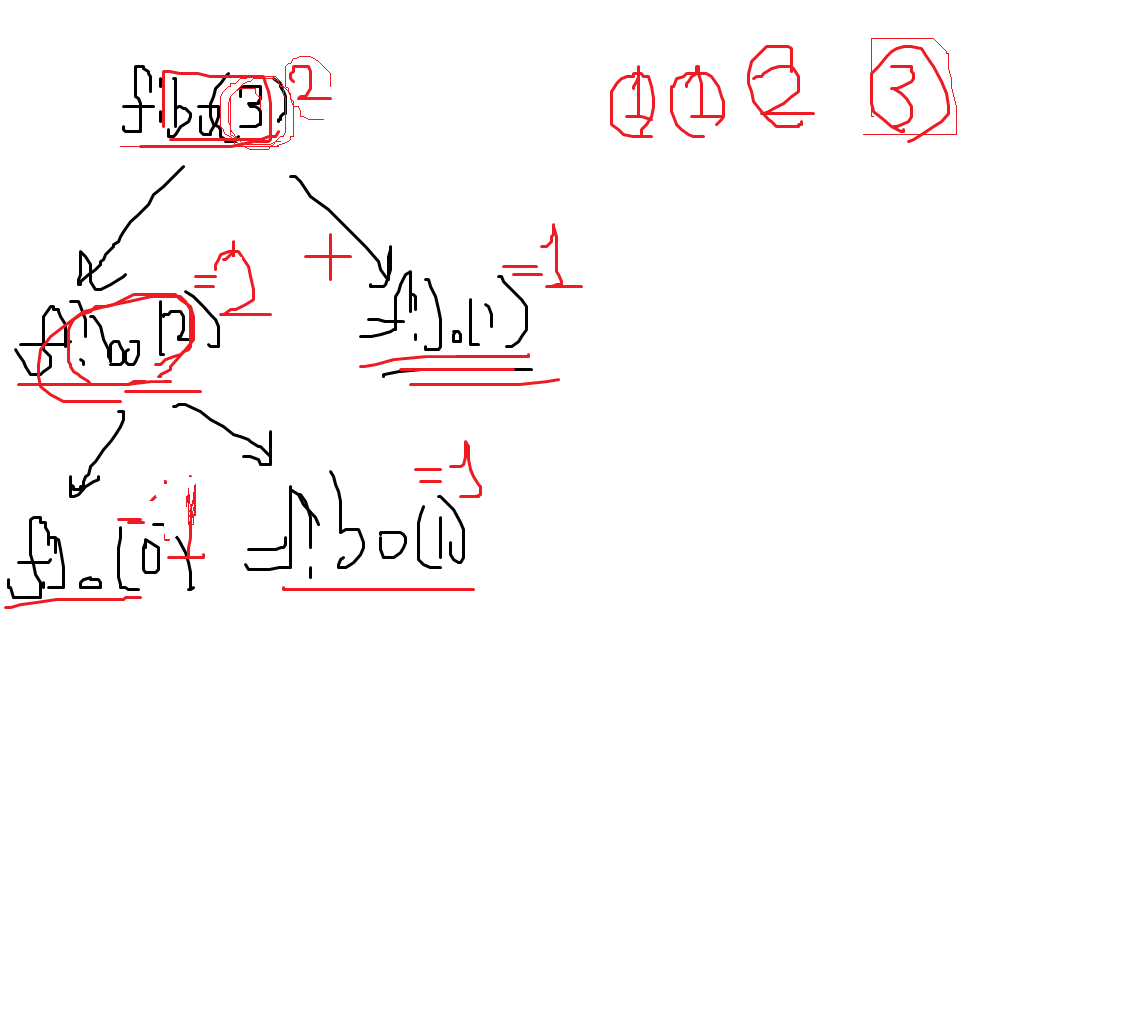 fibo(3) 2 1 1 2 3
fibo(2) =2 + fibo(1) =1
fibo(0) =1 fibo(1) =1